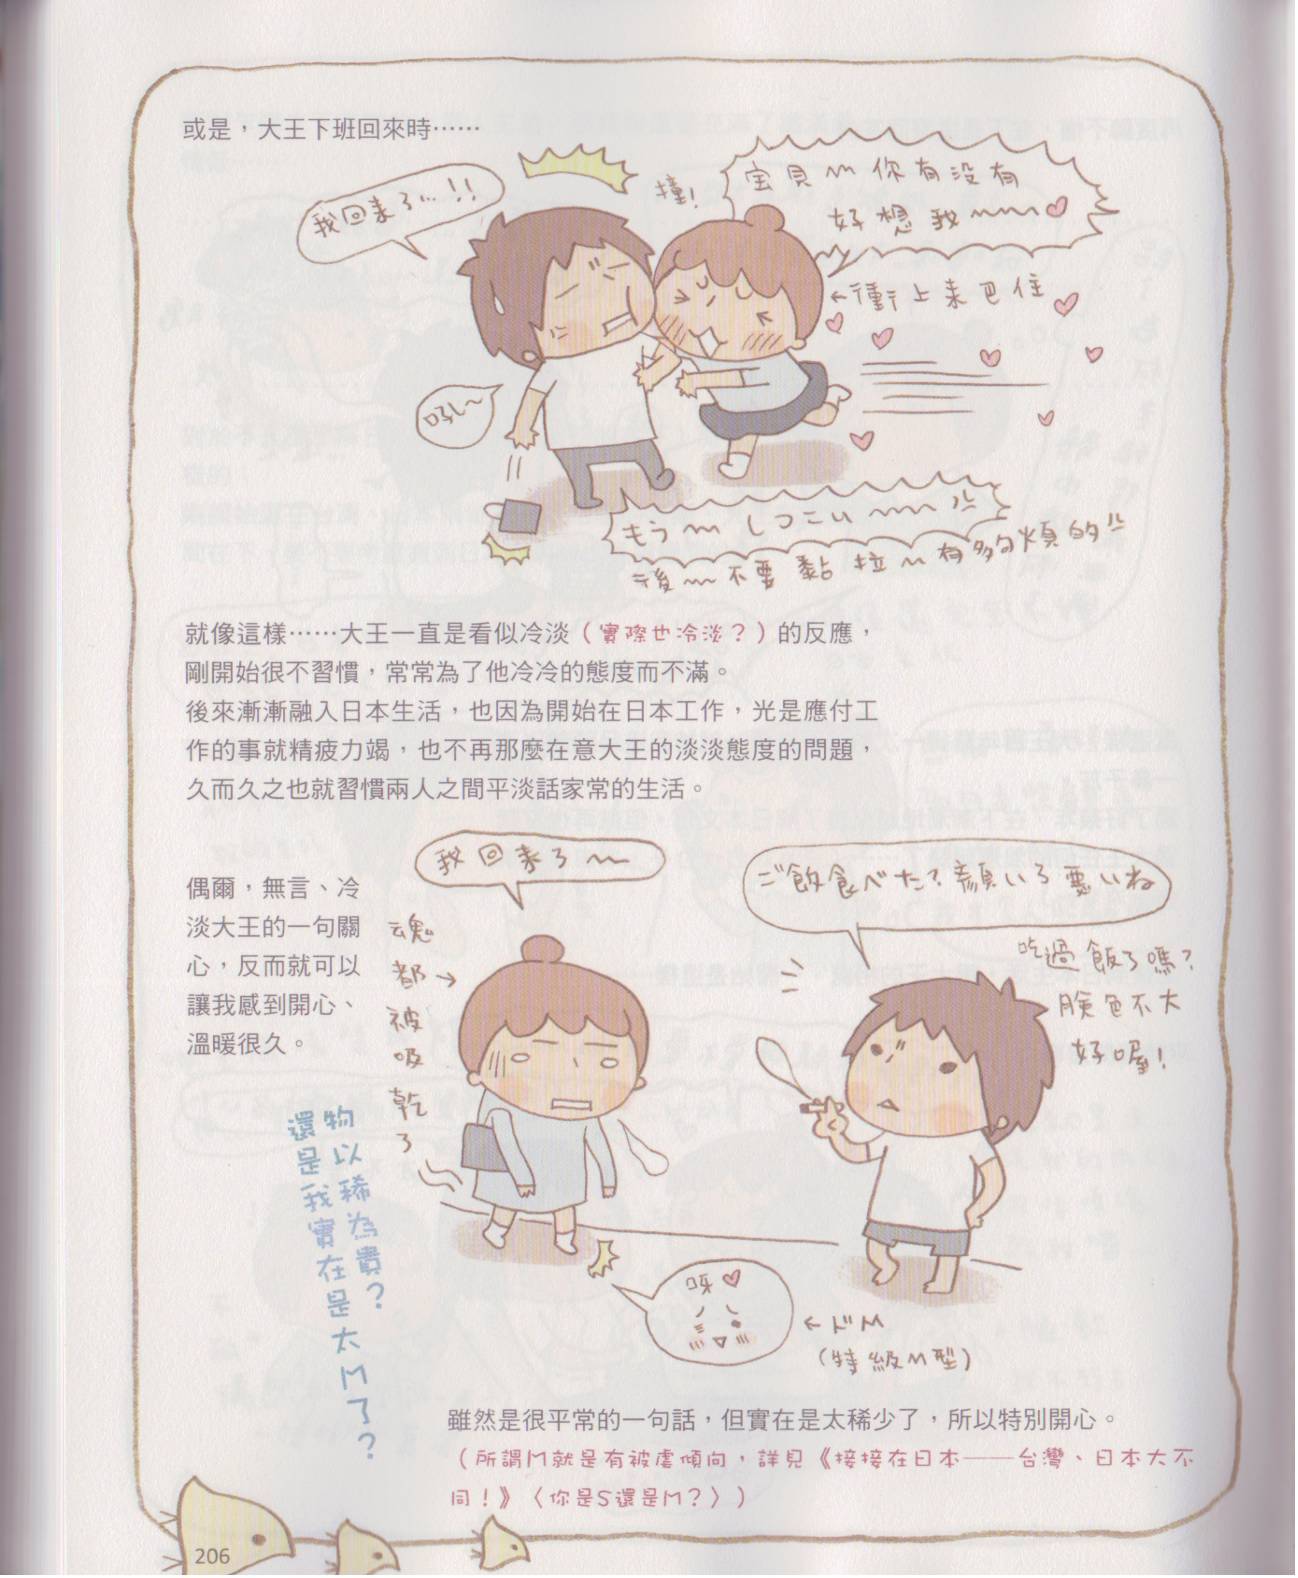 或是，大王下班回來時⋯⋯
我回来了…!!
撞!
宝貝～你有没有
好想我～～♡
←衝上来巴住
もう～ しつこい～～
後～不要黏拉～有夠煩的
就像這樣⋯⋯大王一直是看似冷淡（實際也冷淡？）的反應，
剛開始很不習慣，常常為了他冷冷的態度而不滿。
後來漸漸融入日本生活，也因為開始在日本工作，光是應付工
作的事就精疲力竭，也不再那麼在意大王的淡淡態度的問題，
久而久之也就習慣兩人之間平淡話家常的生活。
我回来了～
ご飯食べた？顏いろ悪いね
吃過飯了嗎？
臉色不大
好喔！
偶爾，無言、冷
淡大王的一句關
心，反而就可以
讓我感到開心、
溫暖很久。
魂都被吸乾了
物以稀為貴？
還是我實在是太M了？
呀♡
←ドM
(特級M型)
雖然是很平常的一句話，但實在是太稀少了，所以特別開心。
（所謂M就是有被虐傾向，詳見《接接在日本——台灣、日本大不
同！》〈你是S還是M？〉）
206